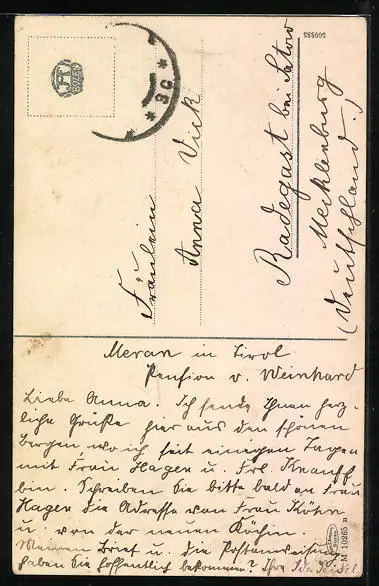 BOZEN
* 3G *
509885
Fräulein
Anna Vick
Radegast bei Satow
Mecklenburg
(Deutschland.)
Meran in Tirol
Pension v. Weinhard
Liebe Anna. Ich sende Ihnen herz-
liche Grüße hier aus den schönen
Bergen wo ich seit einigen Tagen
mit Frau Hagen u. Frl. Knauff
bin. Schreiben Sie bitte bald an Frau
Hagen die Adresse von Frau Köhn
u. von der neuen Köchin.
Meinen Brief u. die Postanweisung
haben Sie hoffentlich bekommen? Ihre Ida
M 10265 n